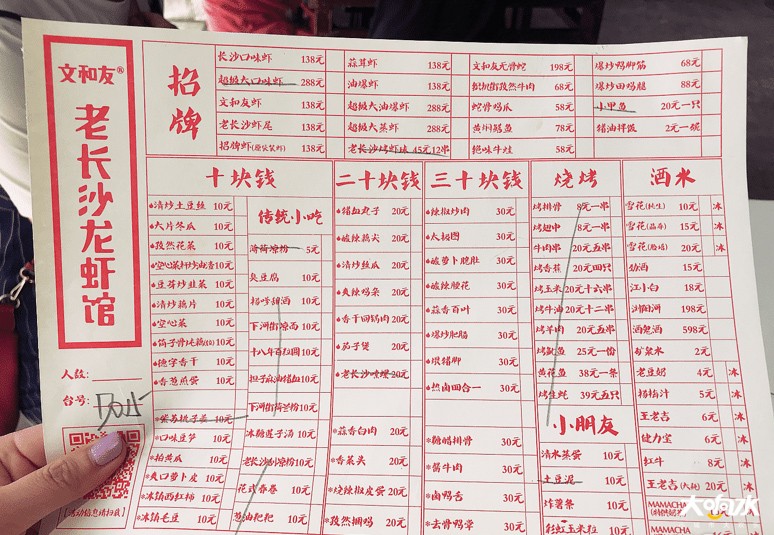 文和友®
老长沙龙虾馆
人数:
台号:
招牌
长沙口味虾 138元
超级大口味虾 288元
文和友虾 138元
老长沙虾尾 138元
招牌虾(原蒸蒸虾) 138元
蒜茸虾 138元
油爆虾 138元
超级大油爆虾 288元
超级大蒸虾 288元
老长沙烤虾球 45元12串
文和友无骨蛇 198元
孜然牛肉 68元
蛇骨鸡爪 58元
黄州鳝鱼 78元
绝味牛蛙 58元
爆炒鸭脚筋 68元
爆炒田鸡腿 88元
小甲鱼 20元一只
猪油拌饭 2元一碗
十块钱
清炒土豆丝 10元
大片冬瓜 10元
孜然花菜 10元
10元
豆芽炒韭菜 10元
清炒藕片 10元
空心菜 10元
筒子骨炖藕 10元
德字香干 10元
香葱煎蛋 10元
*紫苏桃子姜 10元
*口味豆笋 10元
*拍黄瓜 10元
*爽口萝卜皮 10元
*冰镇西红柿 10元
*冰镇毛豆 10元
传统小吃
荷荷凉粉 5元
臭豆腐 10元
甜酒 10元
下河街凉面 10元
十八年百粒圆 10元
担子麻油猪血 10元
下河街芝粉 10元
冰糖莲子汤 10元
老长沙凉粉 10元
花式春卷 10元
葱油粑粑 10元
二十块钱
猪血丸子 20元
酸辣藕尖 20元
清炒丝瓜 20元
爽辣鸡杂 20元
香干回锅肉 20元
茄子煲 20元
老长沙喷喷 20元
*蒜香白肉 20元
*香菜头 20元
*烧辣椒皮蛋 20元
*孜然捆鸡 20元
三十块钱
辣椒炒肉 30元
太极图 30元
酸萝卜脆肚 30元
酸辣腰花 30元
蒜香百叶 30元
爆炒肥肠 30元
煨猪脚 30元
热卤四合一 30元
*糖醋排骨 30元
*酱牛肉 30元
*卤鸭舌 30元
*去骨鸭掌 30元
烧烤
烤排骨 8元一串
烤翅中 8元一串
牛肉串 20元五串
烤香蕉 20元四只
烤玉米 20元十六串
烤牛油 20元十二串
烤羊肉 20元五串
烤鱿鱼 25元一份
黄花鱼 38元一条
烤生蚝 39元五只
小朋友
清水蒸蛋 10元
土豆泥 10元
炸薯条 10元
彩虹玉米粒 10元
酒水
雪花(纯生) 10元 冰
雪花(晶尊) 15元 冰
雪花(脸谱) 20元 冰
劲酒 15元
江小白 18元
浏阳河 198元
酒鬼酒 598元
矿泉水 2元
老豆奶 4元 冰
椿椿汁 5元 冰
王老吉 6元 冰
健力宝 6元 冰
红牛 8元 冰
王老吉(大瓶) 20元 冰
MAMACHA
MAMACHA
【活动信息请扫我】
大响水